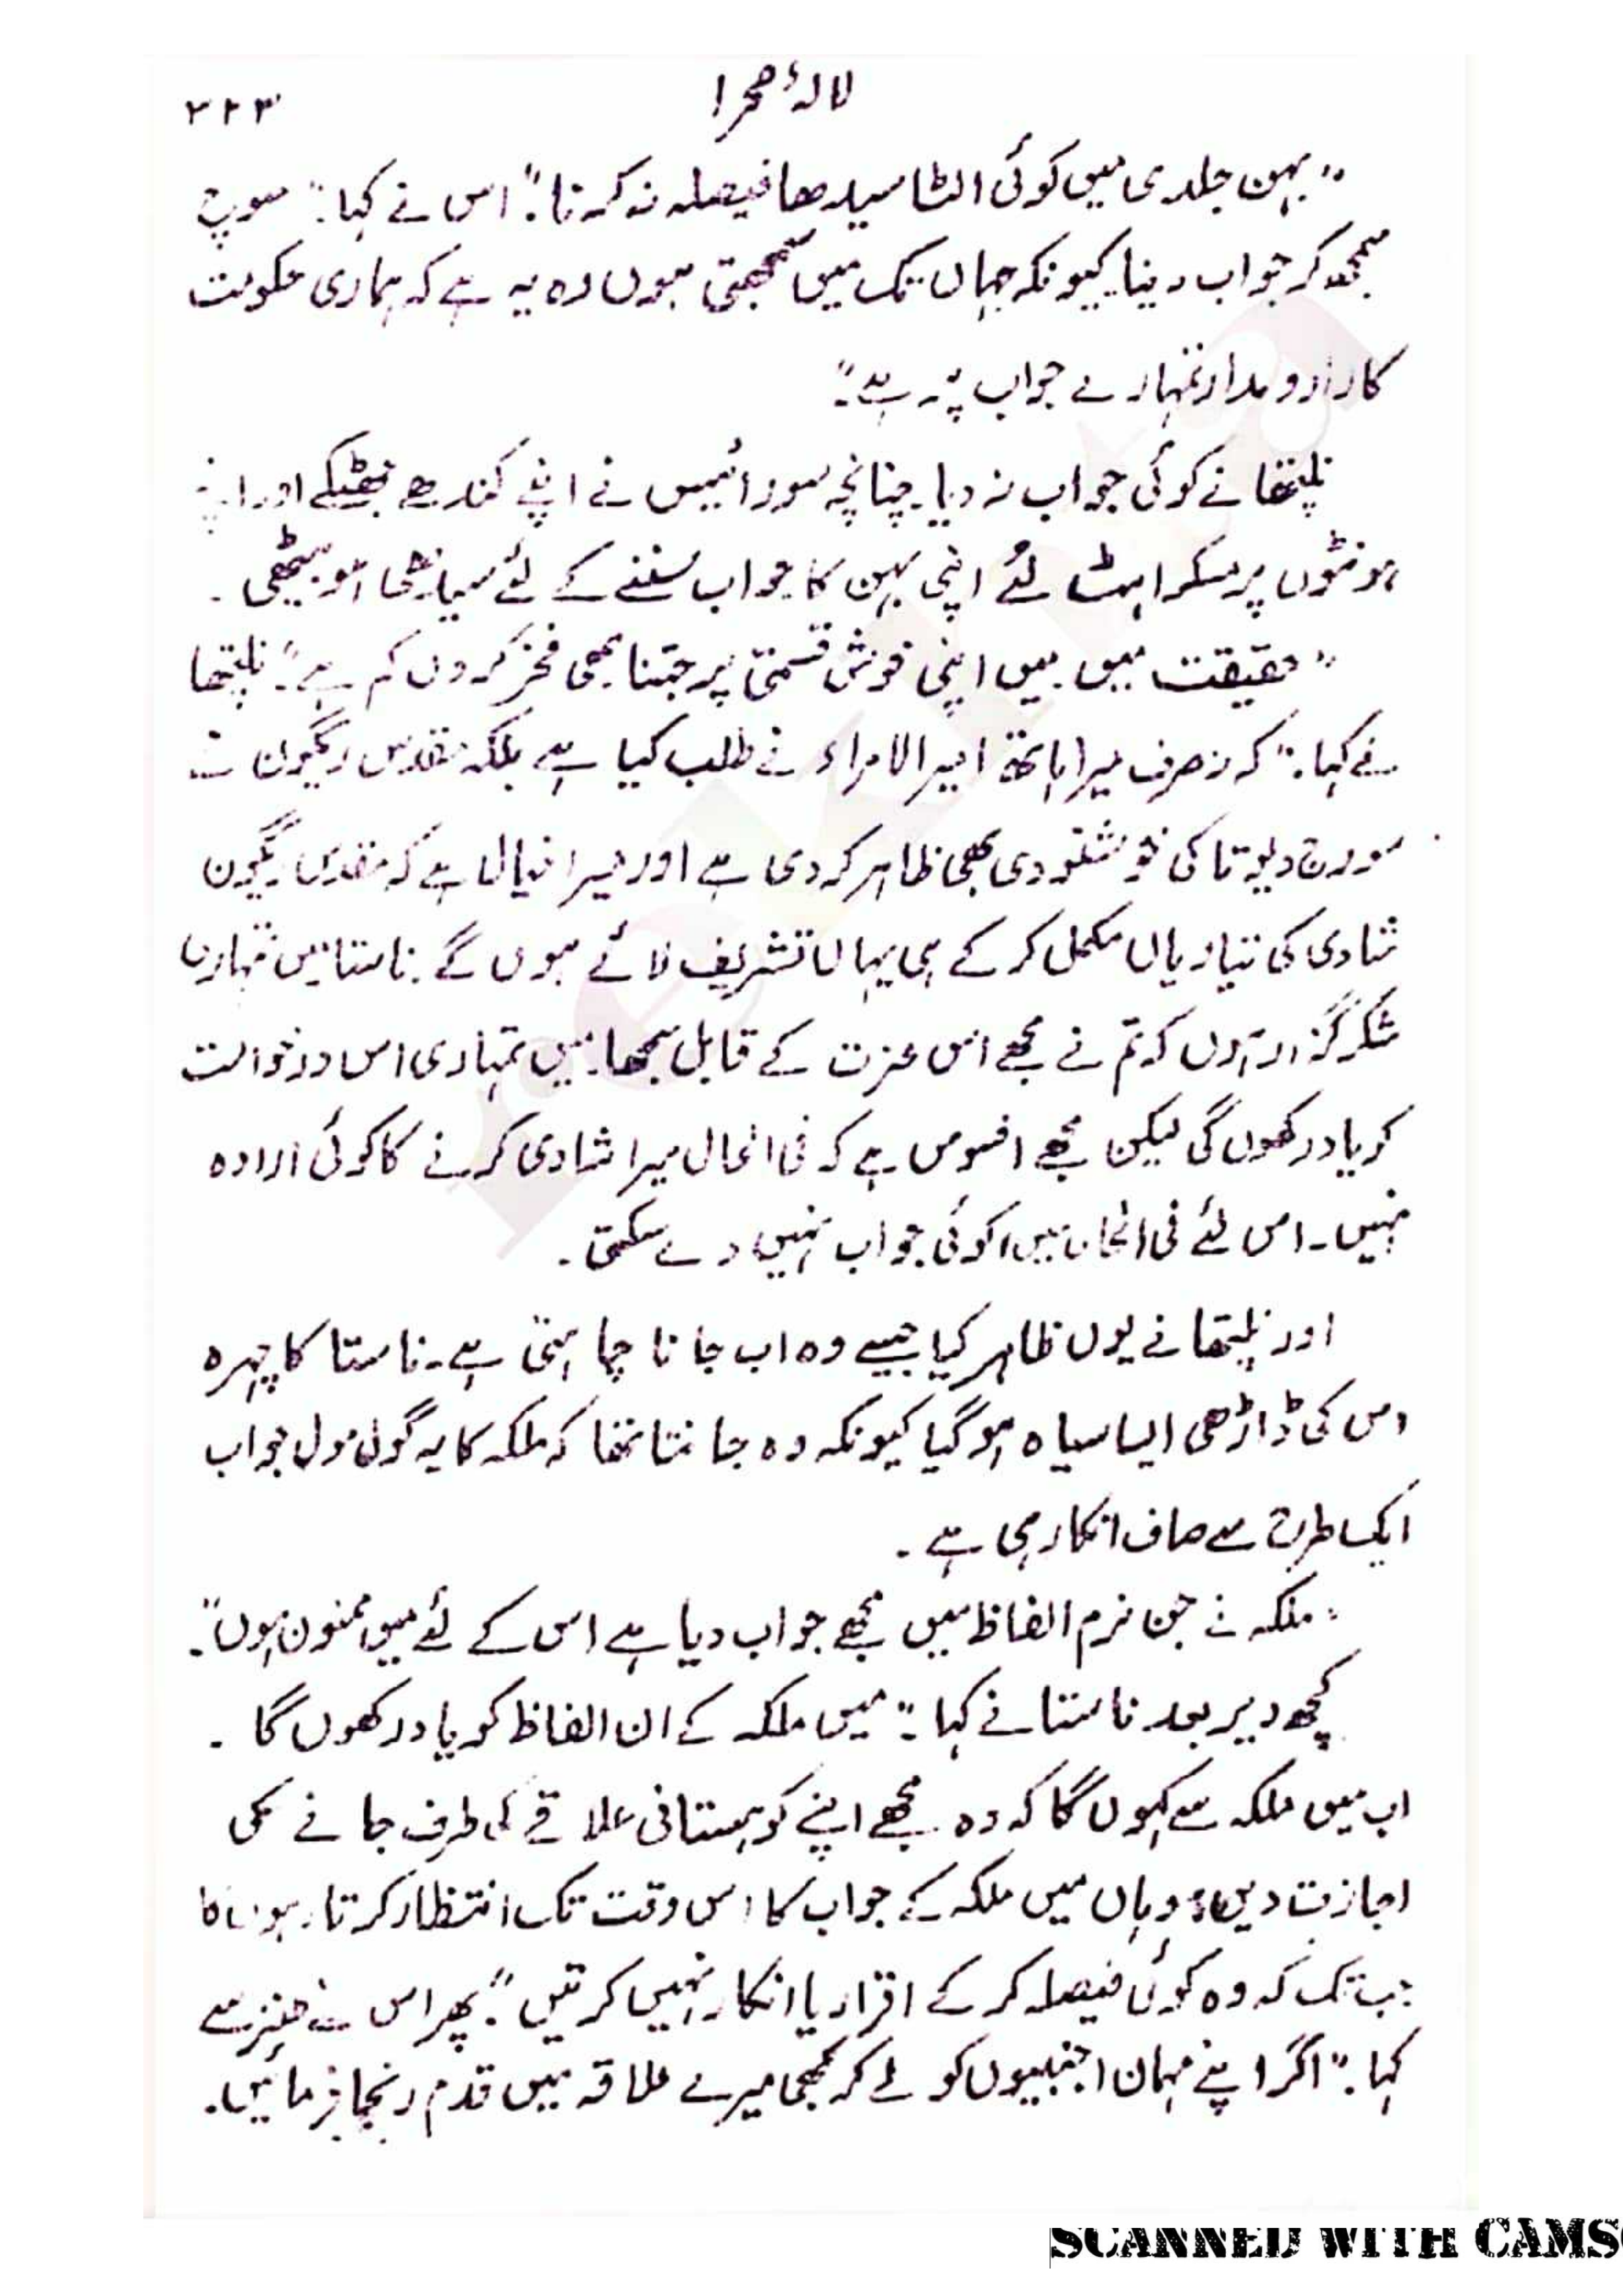 لالۂ صحرا
۲۲۳
”بہن جلدی میں کوئی الٹا سیدھا فیصلہ نہ کرنا“۔ اس نے کہا۔ ”سوچ
سمجھ کر جواب دینا۔ کیونکہ جہاں تک میں سمجھتی ہوں وہ یہ ہے کہ ہماری حکومت
کا دارومدار تمہارے جواب پر ہے“۔
نلپتھا نے کوئی جواب نہ دیا۔ چنانچہ سورائیس نے اپنے کندھے جھٹکے اور اپنے
ہونٹوں پر مسکراہٹ لئے اپنی بہن کا جواب سننے کے لئے سیدھی ہو بیٹھی۔
”حقیقت میں میں اپنی خوش قسمتی پر جتنا بھی فخر کروں کم ہے“۔ نلپتھا
نے کہا۔ ”کہ نہ صرف میرا ہاتھ امیرالامراء نے طلب کیا ہے بلکہ مقدس ریگون نے
سورج دیوتا کی خوشنودی بھی ظاہر کر دی ہے اور میرا خیال ہے کہ مقدس ریگون
شادی کی تیاریاں مکمل کر کے ہی یہاں تشریف لائے ہوں گے۔ ناستا میں تمہاری
شکر گزار ہوں کہ تم نے مجھے اس عزت کے قابل سمجھا۔ میں تمہاری اس درخواست
کو یاد رکھوں گی لیکن مجھے افسوس ہے کہ فی الحال میرا شادی کرنے کا کوئی ارادہ
نہیں۔ اس لئے فی الحال میں کوئی جواب نہیں دے سکتی۔
اور نلپتھا نے یوں ظاہر کیا جیسے وہ اب جانا چاہتی ہے۔ ناستا کا چہرہ
اس کی ڈاڑھی ایسا سیاہ ہو گیا کیونکہ وہ جانتا تھا کہ ملکہ کا یہ گول مول جواب
ایک طرح سے صاف انکار ہی ہے۔
”ملکہ نے جن نرم الفاظ میں مجھے جواب دیا ہے اس کے لئے میں ممنون ہوں“۔
کچھ دیر بعد ناستا نے کہا۔ ”میں ملکہ کے ان الفاظ کو یاد رکھوں گا۔
اب میں ملکہ سے کہوں گا کہ وہ مجھے اپنے کوہستانی علاقے کی طرف جانے کی
اجازت دیں۔ وہاں میں ملکہ کے جواب کا اس وقت تک انتظار کرتا رہوں گا
جب تک کہ وہ کوئی فیصلہ کر کے اقرار یا انکار نہیں کرتیں“۔ پھر اس نے طنز سے
کہا۔ ”اگر اپنے مہمان اجنبیوں کو لے کر کبھی میرے علاقہ میں قدم رنجا فرمائیں۔
SCANNED WITH CAMS